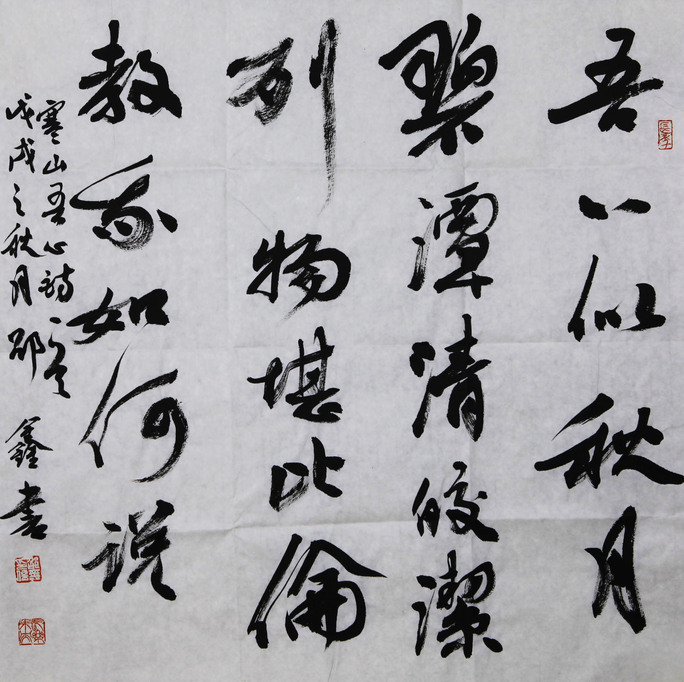 吾心似秋月
碧潭清皎潔
列物堪比倫
教我如何说
寒山吾心詩一首
戊戌之秋月邵鑫書